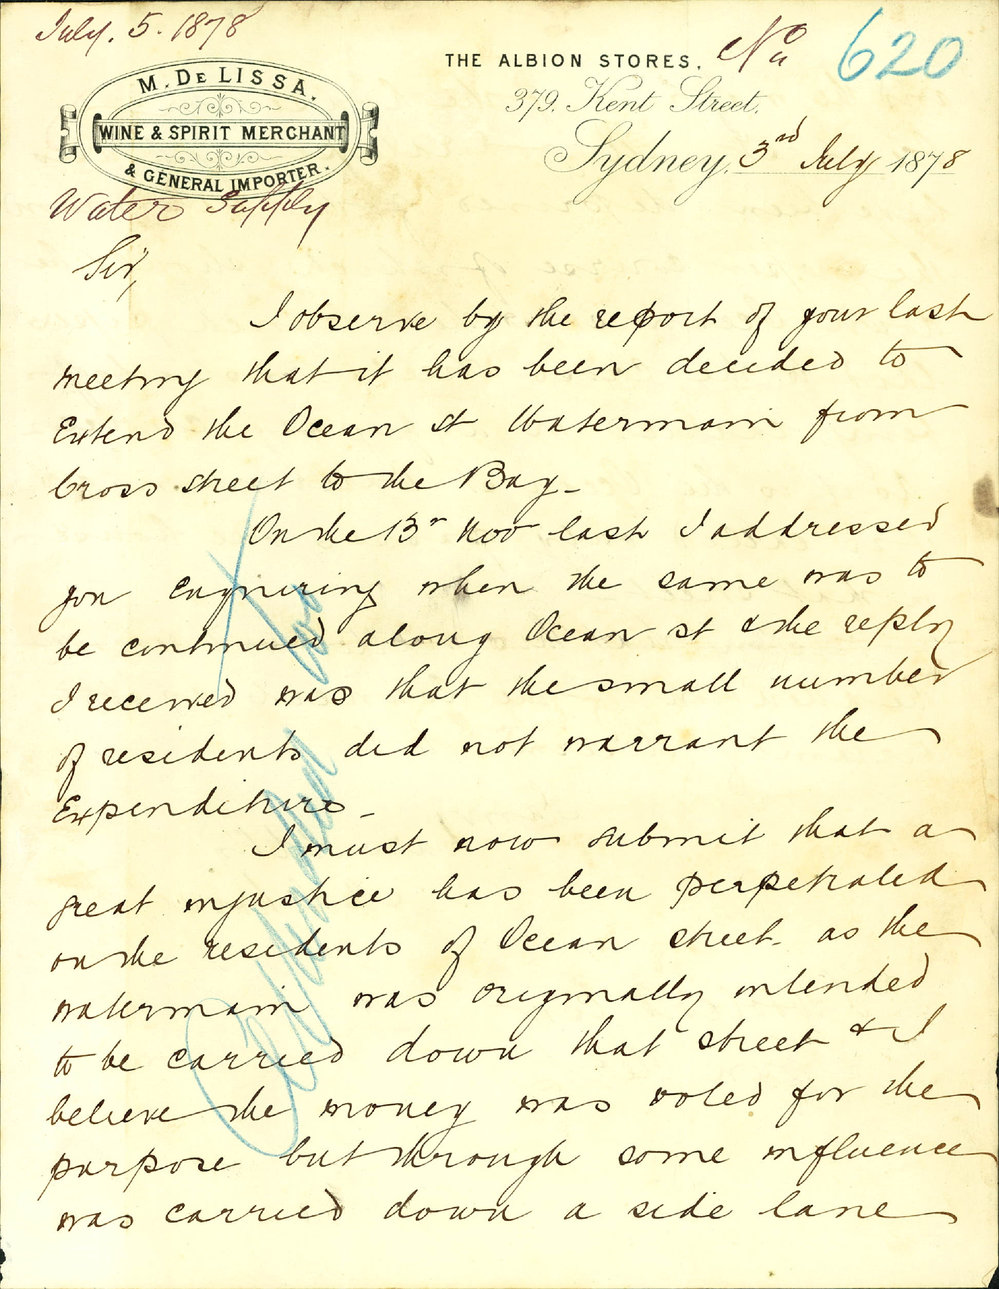 July. 5. 1878
THE ALBION STORES. No 620
M. DE LISSA.
WINE & SPIRIT MERCHANT
& GENERAL IMPORTER.
379. Kent Street.
Sydney, 3rd July 1878
Water Supply
Sir,
I observe by the report of your last
meeting that it has been decided to
Extend the Ocean St Watermain from
Cross street to the Bay_
On the 13r Nov last I addressed
you enquiring when the same was to
be continued along Ocean st & the reply
I received was that the small number
of residents did not warrant the
Expenditure_
I must now submit that a
great injustice has been perpetrated
on the residents of Ocean street as the
watermain was originally intended
to be carried down that street & I
believe the money was voted for the
purpose but through some influence
was carried down a side lane
Attended to